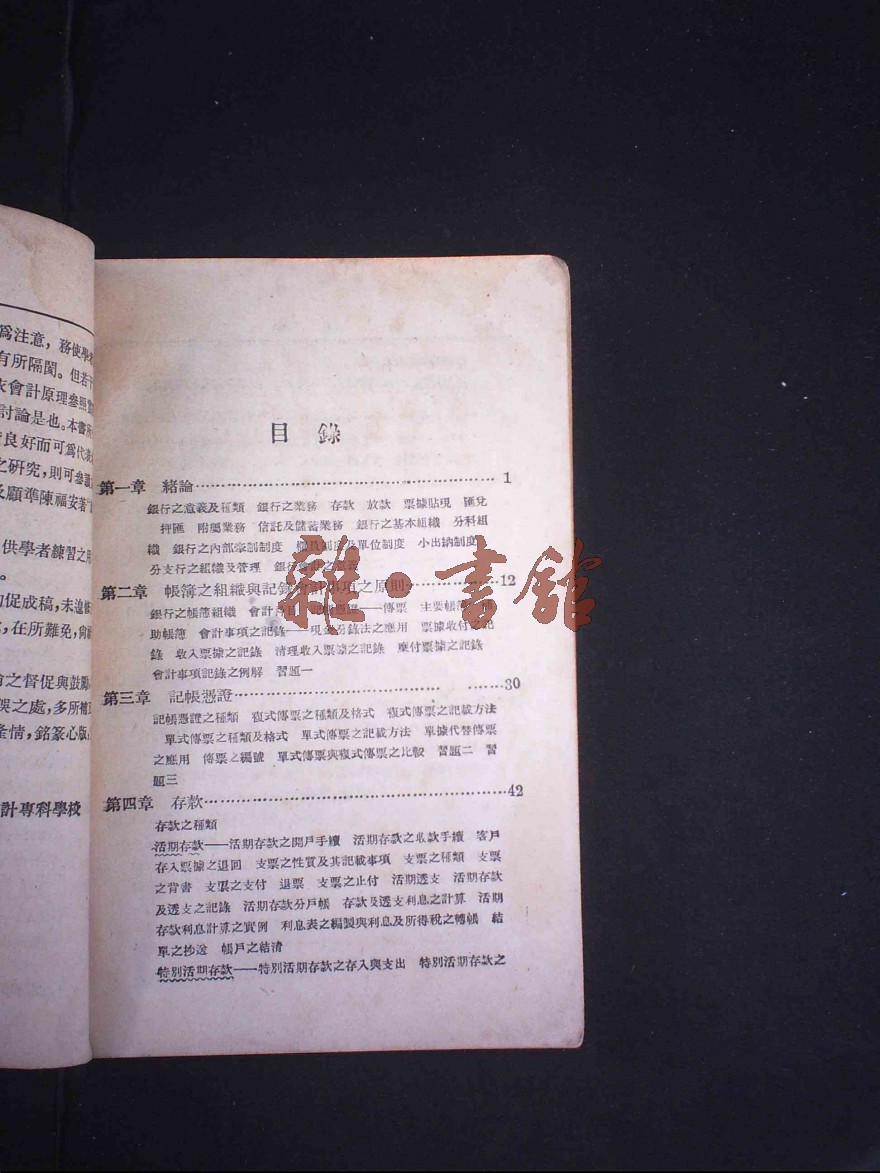 爲注意，務使學
有所隔閡。但若
會計原理參照
討論是也。本書所
良好而可爲代表
之研究，則可參
顧準陳福安著
供學者練習之用
。
促成稿，未遑
，在所難免，尙
之督促與鼓勵
誤之處，多所補
情，銘篆心版
計專科學校
目錄
第一章 緒論 1
銀行之意義及種類 銀行之業務 存款 放款 票據貼現 匯兌
押匯 附屬業務 信託及儲蓄業務 銀行之基本組織 分科組
織 銀行之內部牽制制度 及單位制度 小出納制度
分支行之組織及管理 銀行會計之
第二章 帳簿之組織與記錄會計事項之原則 12
銀行之帳簿組織 會計科目 記帳憑證——傳票 主要帳簿 補
助帳簿 會計事項之記錄——現金分錄法之應用 票據收付之記
錄 收入票據之記錄 清理收入票據之記錄 應付票據之記錄
會計事項記錄之例解 習題一
第三章 記帳憑證 30
記帳憑證之種類 複式傳票之種類及格式 複式傳票之記載方法
單式傳票之種類及格式 單式傳票之記載方法 單據代替傳票
之應用 傳票之編號 單式傳票與複式傳票之比較 習題二 習
題三
第四章 存款 42
存款之種類
活期存款——活期存款之開戶手續 活期存款之收款手續 客戶
存入票據之退回 支票之性質及其記載事項 支票之種類 支票
之背書 支票之支付 退票 支票之止付 活期透支 活期存款
及透支之記錄 活期存款分戶帳 存款及透支利息之計算 活期
存款利息計算之實例 利息表之編製與利息及所得稅之轉帳 結
單之抄送 帳戶之結清
特別活期存款——特別活期存款之存入與支出 特別活期存款之
雜·書館